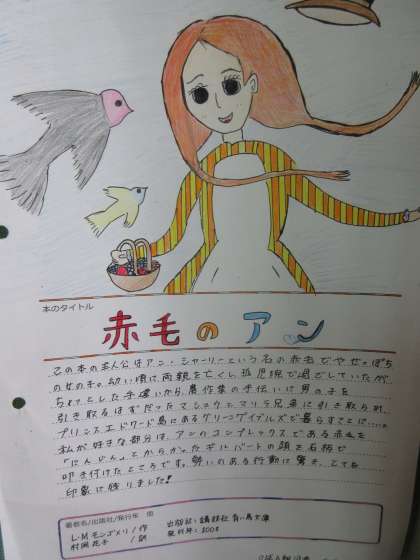 本のタイトル
赤毛のアン
この本の主人公はアン・シャーリーという名の赤毛でやせっぽち
の女の子。幼い頃に両親を亡くし、孤児院で過ごしていたが
ちょっとした手違いから、農作業の手伝いに男の子を
引き取るはずだったマシュウとマリラ兄妹に引き取られ、
プリンスエドワード島にあるグリーンゲイブルズで暮らすことに…。
私が好きな部分は、アンのコンプレックスである赤毛を
「にんじん」とからかったギルバートの頭を石板で
叩き付けたところです。勢いのある行動に驚き、とても
印象に残りました!
著者名/出版社/発行年 他
L・Mモンゴメリ/作
村岡花子 /訳
出版社: 講談社 青い鳥文庫
発行年: 2008